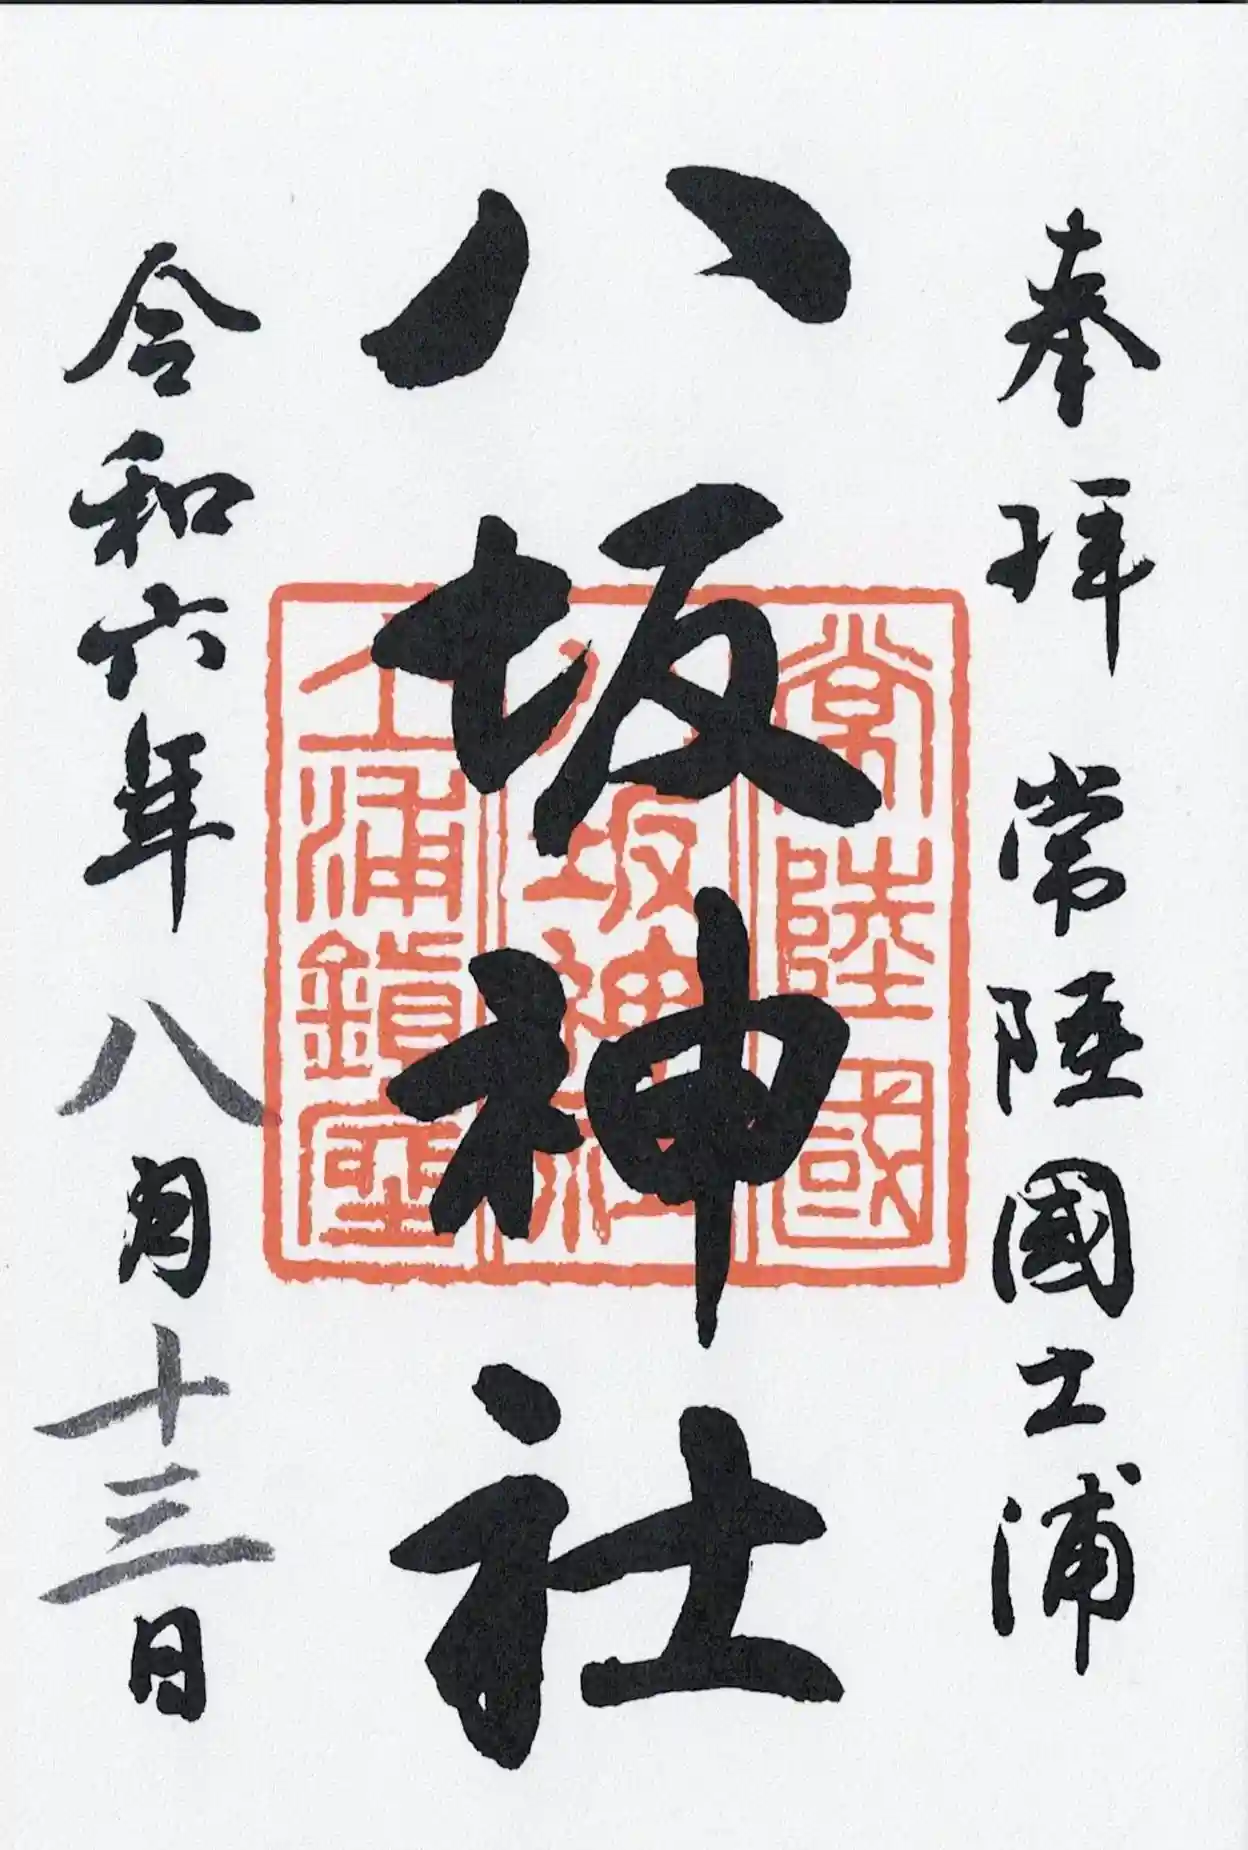 奉拝 常陸國土浦
八坂神社
令和六年八月十三日
常陸國
八坂神社
土浦鎮座